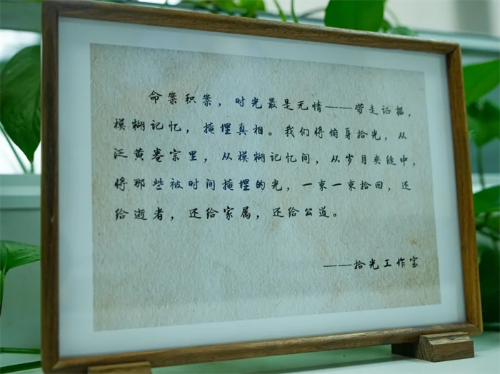 命案积案，时光最是无情——带走话柄，
模糊记忆，掩埋真相。我们将俯身拾光，从
泛黄卷宗里，从模糊记忆间，从岁月夹缝中，
将那些被时间掩埋的光，一束一束拾回，还
给逝者，还给家属，还给公道。
——拾光工作室